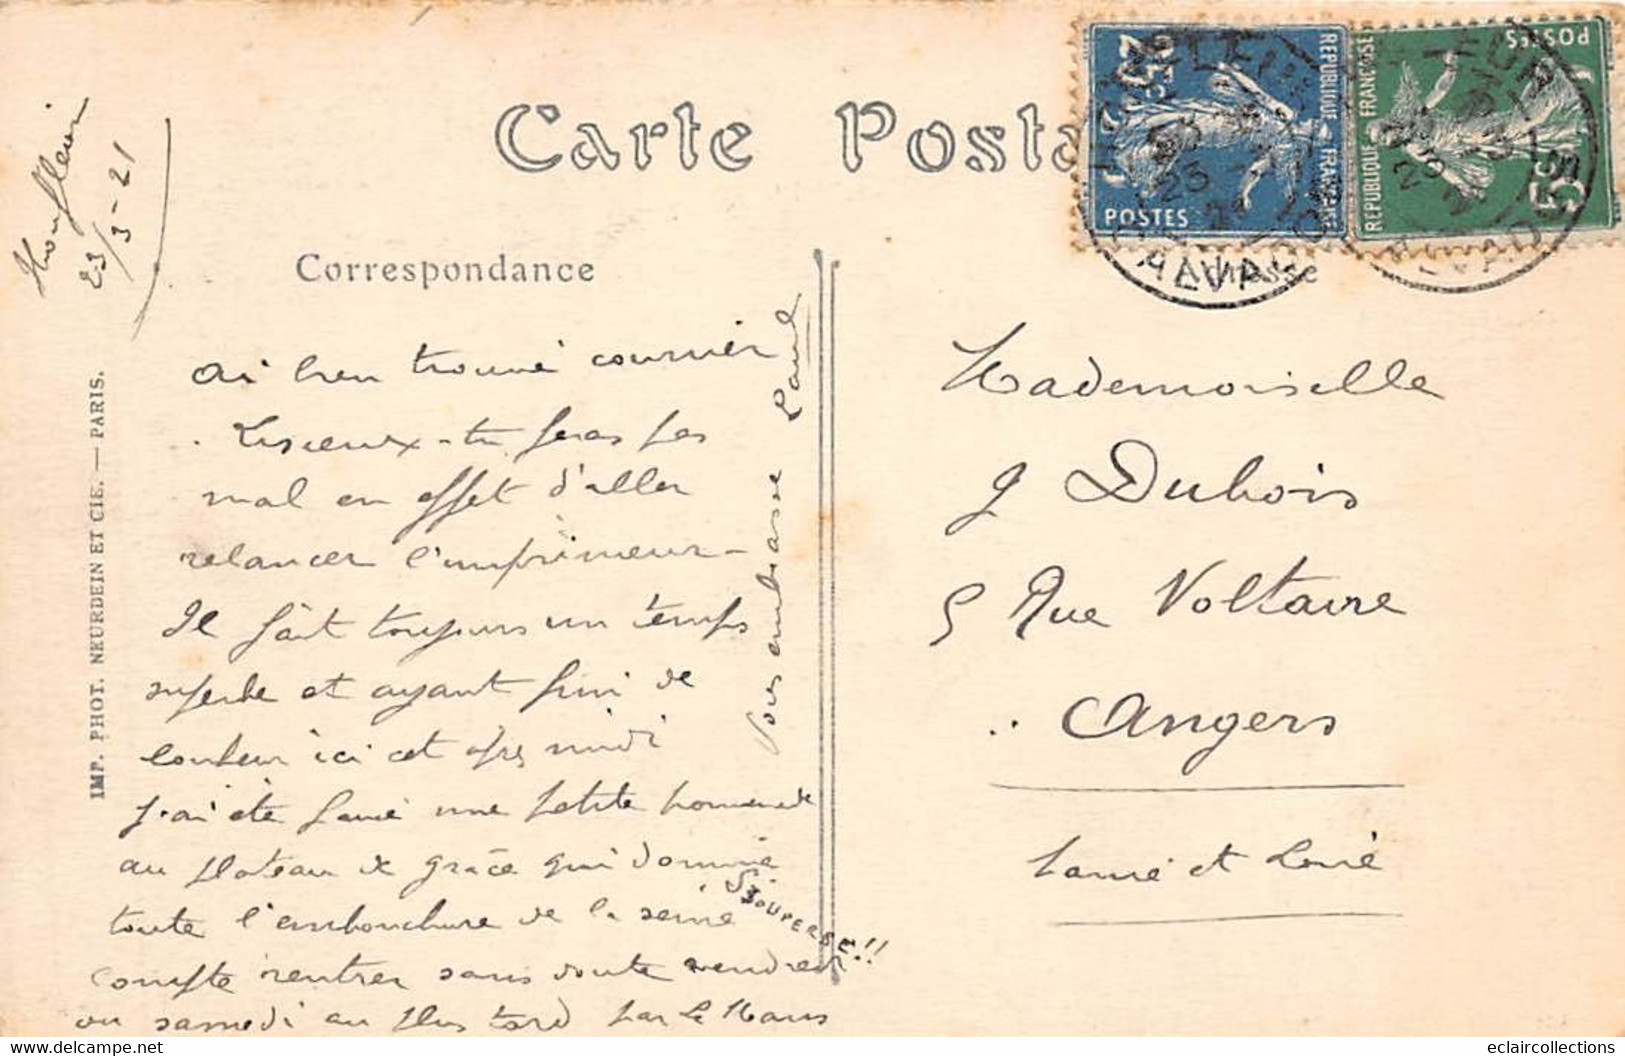 Honfleur
23/3-21
Carte Posta
25c
REPUBLIQUE FRANÇAISE
POSTES
5c
REPUBLIQUE FRANÇAISE
POSTES
HONFLEUR
CALVADOS
Correspondance
Adresse
IMP. PHOT. NEURDEIN ET CIE. — PARIS.
ai bien trouvé courrier
Lisieux - tu feras pas
mal en effet d'aller
relancer l'imprimeur -
Il fait toujours un temps
superbe et ayant fini de
bonheur ici cet après midi
j'ai été faire une petite promenade
au plateau de grâce qui domine
toute l'embouchure de la seine
SOUPERBE!!
compte rentrer sans doute vendredi
ou samedi au plus tard par le Mans
Vous embrasse Paul
Mademoiselle
J Dubois
5 Rue Voltaire
Angers
Maine et Loire
https://www.delcampe.net
eclaircollections